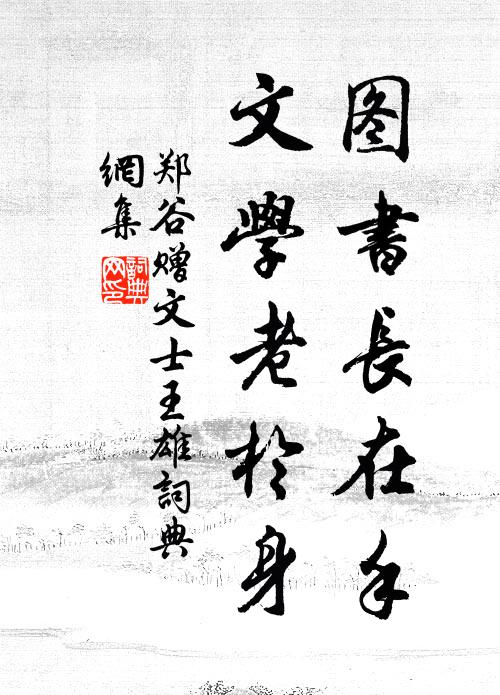 图書長在手
文學老於身
郑谷赠文士王雄詞典
網集
詞典网印